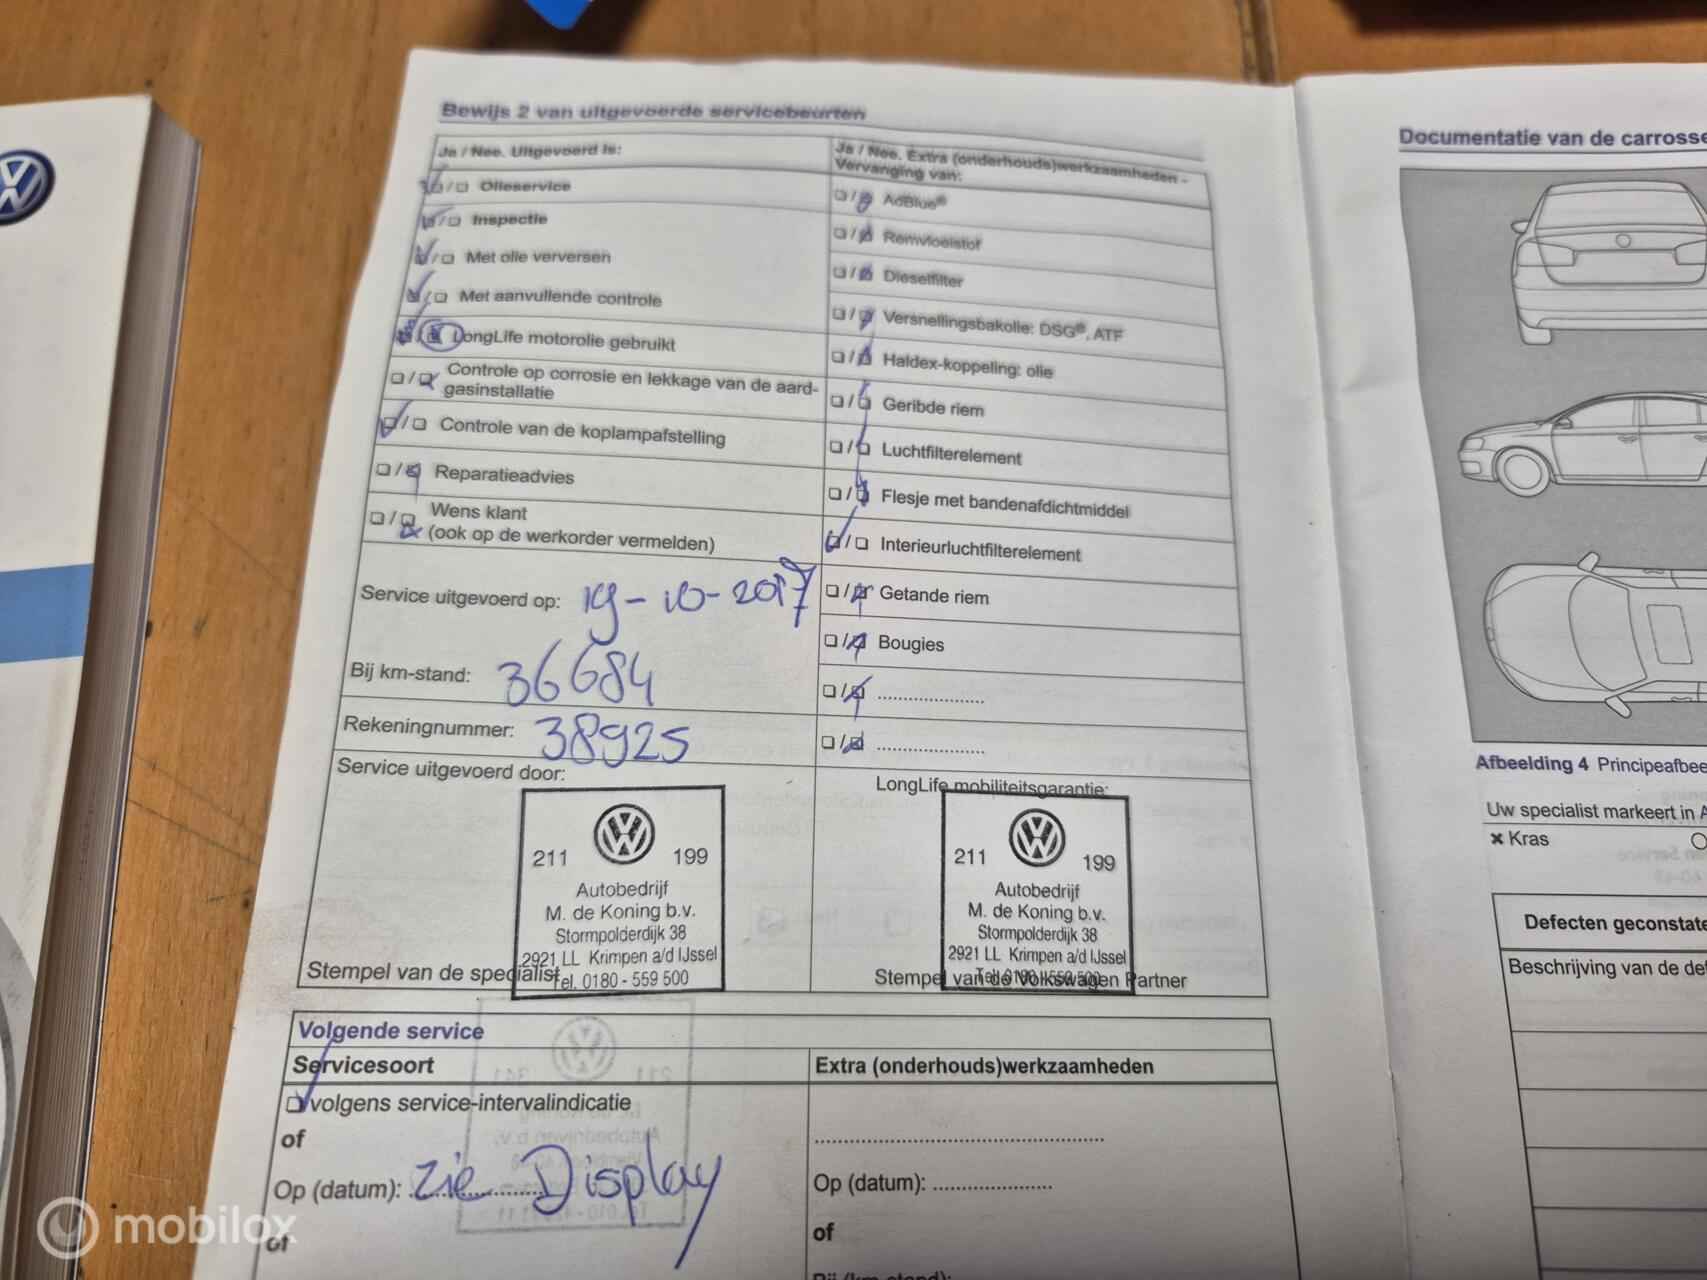 Bewijs 2 van uitgevoerde servicebeurten
Ja / Nee. Uitgevoerd is:
Olieservice
Inspectie
Met olie verversen
Met aanvullende controle
LongLife motorolie gebruikt
Controle op corrosie en lekkage van de aard-
gasinstallatie
Controle van de koplampafstelling
Reparatieadvies
Wens klant
(ook op de werkorder vermelden)
Service uitgevoerd op: 19-10-2017
Bij km-stand: 36684
Rekeningnummer: 38925
Service uitgevoerd door:
211 199
Autobedrijf
M. de Koning b.v.
Stormpolderdijk 38
2921 LL Krimpen a/d IJssel
Tel. 0180 - 559 500
Stempel van de specialist
Ja / Nee. Extra (onderhouds)werkzaamheden -
Vervanging van:
AdBlue®
Remvloeistof
Dieselfilter
Versnellingsbakolie: DSG®, ATF
Haldex-koppeling: olie
Geribde riem
Luchtfilterelement
Flesje met bandenafdichtmiddel
Interieurluchtfilterelement
Getande riem
Bougies
LongLife mobiliteitsgarantie:
211 199
Autobedrijf
M. de Koning b.v.
Stormpolderdijk 38
2921 LL Krimpen a/d IJssel
Tel. 0180 - 559 500
Stempel van de Volkswagen Partner
Volgende service
Servicesoort
volgens service-intervalindicatie
of
Op (datum): zie Display
of
Extra (onderhouds)werkzaamheden
Op (datum):
of
Bij (km-stand):
Documentatie van de carrosse
Afbeelding 4 Principeafbee
Uw specialist markeert in A
Kras
Defecten geconstate
Beschrijving van de def
mobilox